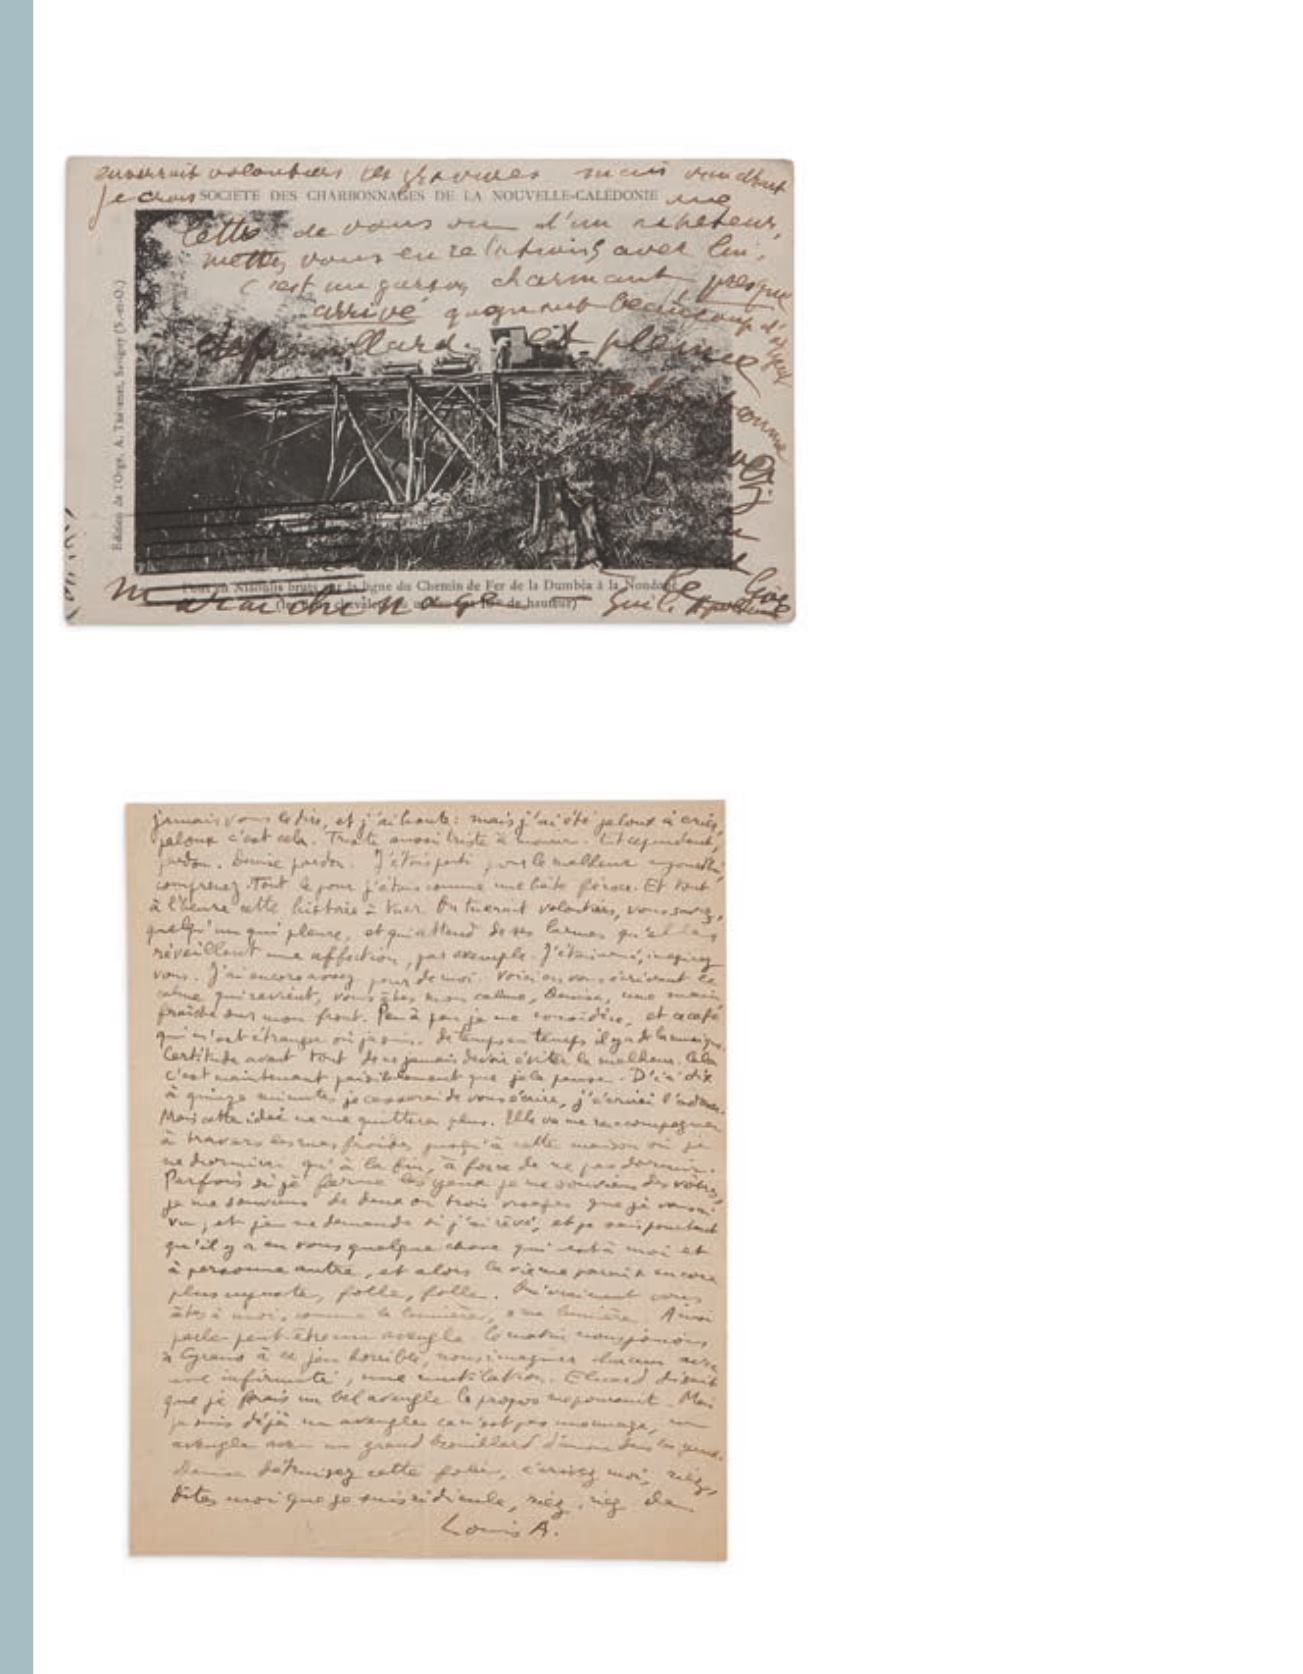 enverrait volontiers des gravures mais voudrait
je crois SOCIÉTÉ DES CHARBONNAGES DE LA NOUVELLE-CALÉDONIE une
lettre de vous ou d'un acheteur,
mettez vous en relations avec lui,
c'est un garçon charmant presque
arrivé gagnant beaucoup d'
et pleine
bonne
Édition de l'Orge, A. Thévenet, Savigny (S.-et-O.)
Pont en Niaoulis bruts sur la ligne du Chemin de Fer de la Dumbéa à la Nondoué
de hauteur)
Guil. Apollinaire
jamais vous le dire, et j'ai honte : mais j'ai été jaloux à crier,
jaloux c'est cela. Triste aussi triste à mourir. Et cependant,
pardon. Denise pardon. J'étais parti pour le malheur aujourd'hui,
comprenez. Tout le jour j'étais comme une bête féroce. Et tout
à l'heure cette histoire à tuer. On tuerait volontiers, vous savez,
quelqu'un qui pleure, et qui attend de ses larmes qu'elles
réveillent une affection, par exemple. J'étais armé, imaginez
vous. J'ai encore assez peur de moi. Voici en vous écrivant le
calme qui revient, vous êtes mon calme, Denise, une main
fraîche sur mon front. Peu à peu je me considère, et ce café
qui m'est étranger où je suis. De temps en temps il y a de la musique.
Certitude avant tout de ne jamais devoir éviter le malheur. Cela
c'est maintenant paisiblement que je le pense. D'ici dix
à quinze minutes je cesserai de vous écrire, j'écrirai l'adresse.
Mais cette idée ne me quittera plus. Elle va me raccompagner
à travers les rues froides jusqu'à cette maison où je
ne dormirai qu'à la fin, à force de ne pas dormir.
Parfois si je ferme les yeux je me souviens des vôtres,
je me souviens de deux ou trois visages que je vous ai
vu, et je me demande si j'ai rêvé, et je sais pourtant
qu'il y a en vous quelque chose qui est à moi et
à personne autre, et alors la vie me paraît encore
plus injuste, folle, folle. Ou vraiment vous
êtes à moi, comme la lumière, une lumière. Ainsi
parle peut-être un aveugle. Ce matin nous jouions
à Cyrano à ce jeu horrible, nous imaginer chacun avec
une infirmité, une mutilation. Eluard disait
que je ferais un bel aveugle le propos Moi
je suis déjà un aveugle ce n'est pas mensonge, un
aveugle avec un grand brouillard d'amour dans les yeux.
Denise détruisez cette folie, écrivez moi, riez,
dites moi que je suis ridicule, riez, riez
Louis A.